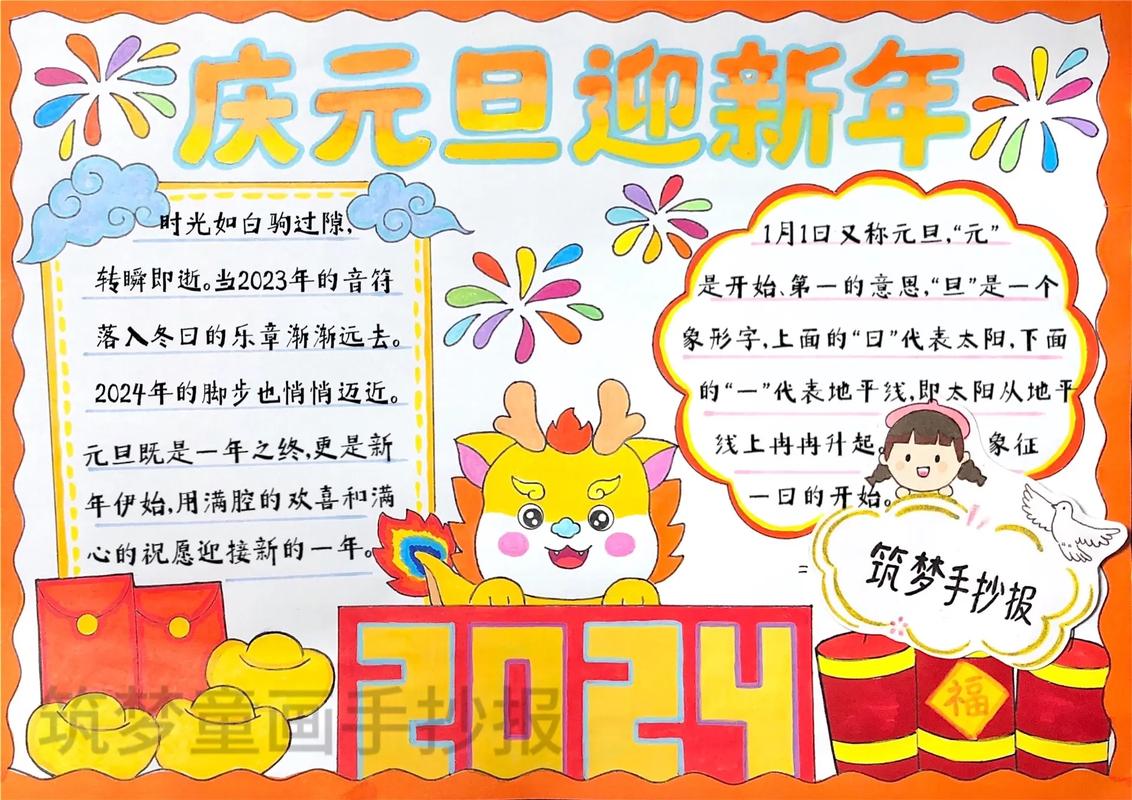 庆元旦迎新年
时光如白驹过隙,
转瞬即逝。当2023年的音符
落入冬日的乐章渐渐远去。
2024年的脚步也悄悄迈近。
元旦既是一年之终,更是新
年伊始,用满腔的欢喜和满
心的祝愿迎接新的一年。
1月1日又称元旦,“元”
是开始、第一的意思,“旦”是一个
象形字,上面的“日”代表太阳,下面
的“一”代表地平线,即太阳从地平
线上冉冉升起。 象征
一日的开始。
筑梦手抄报
2024
福
筑梦童画手抄报